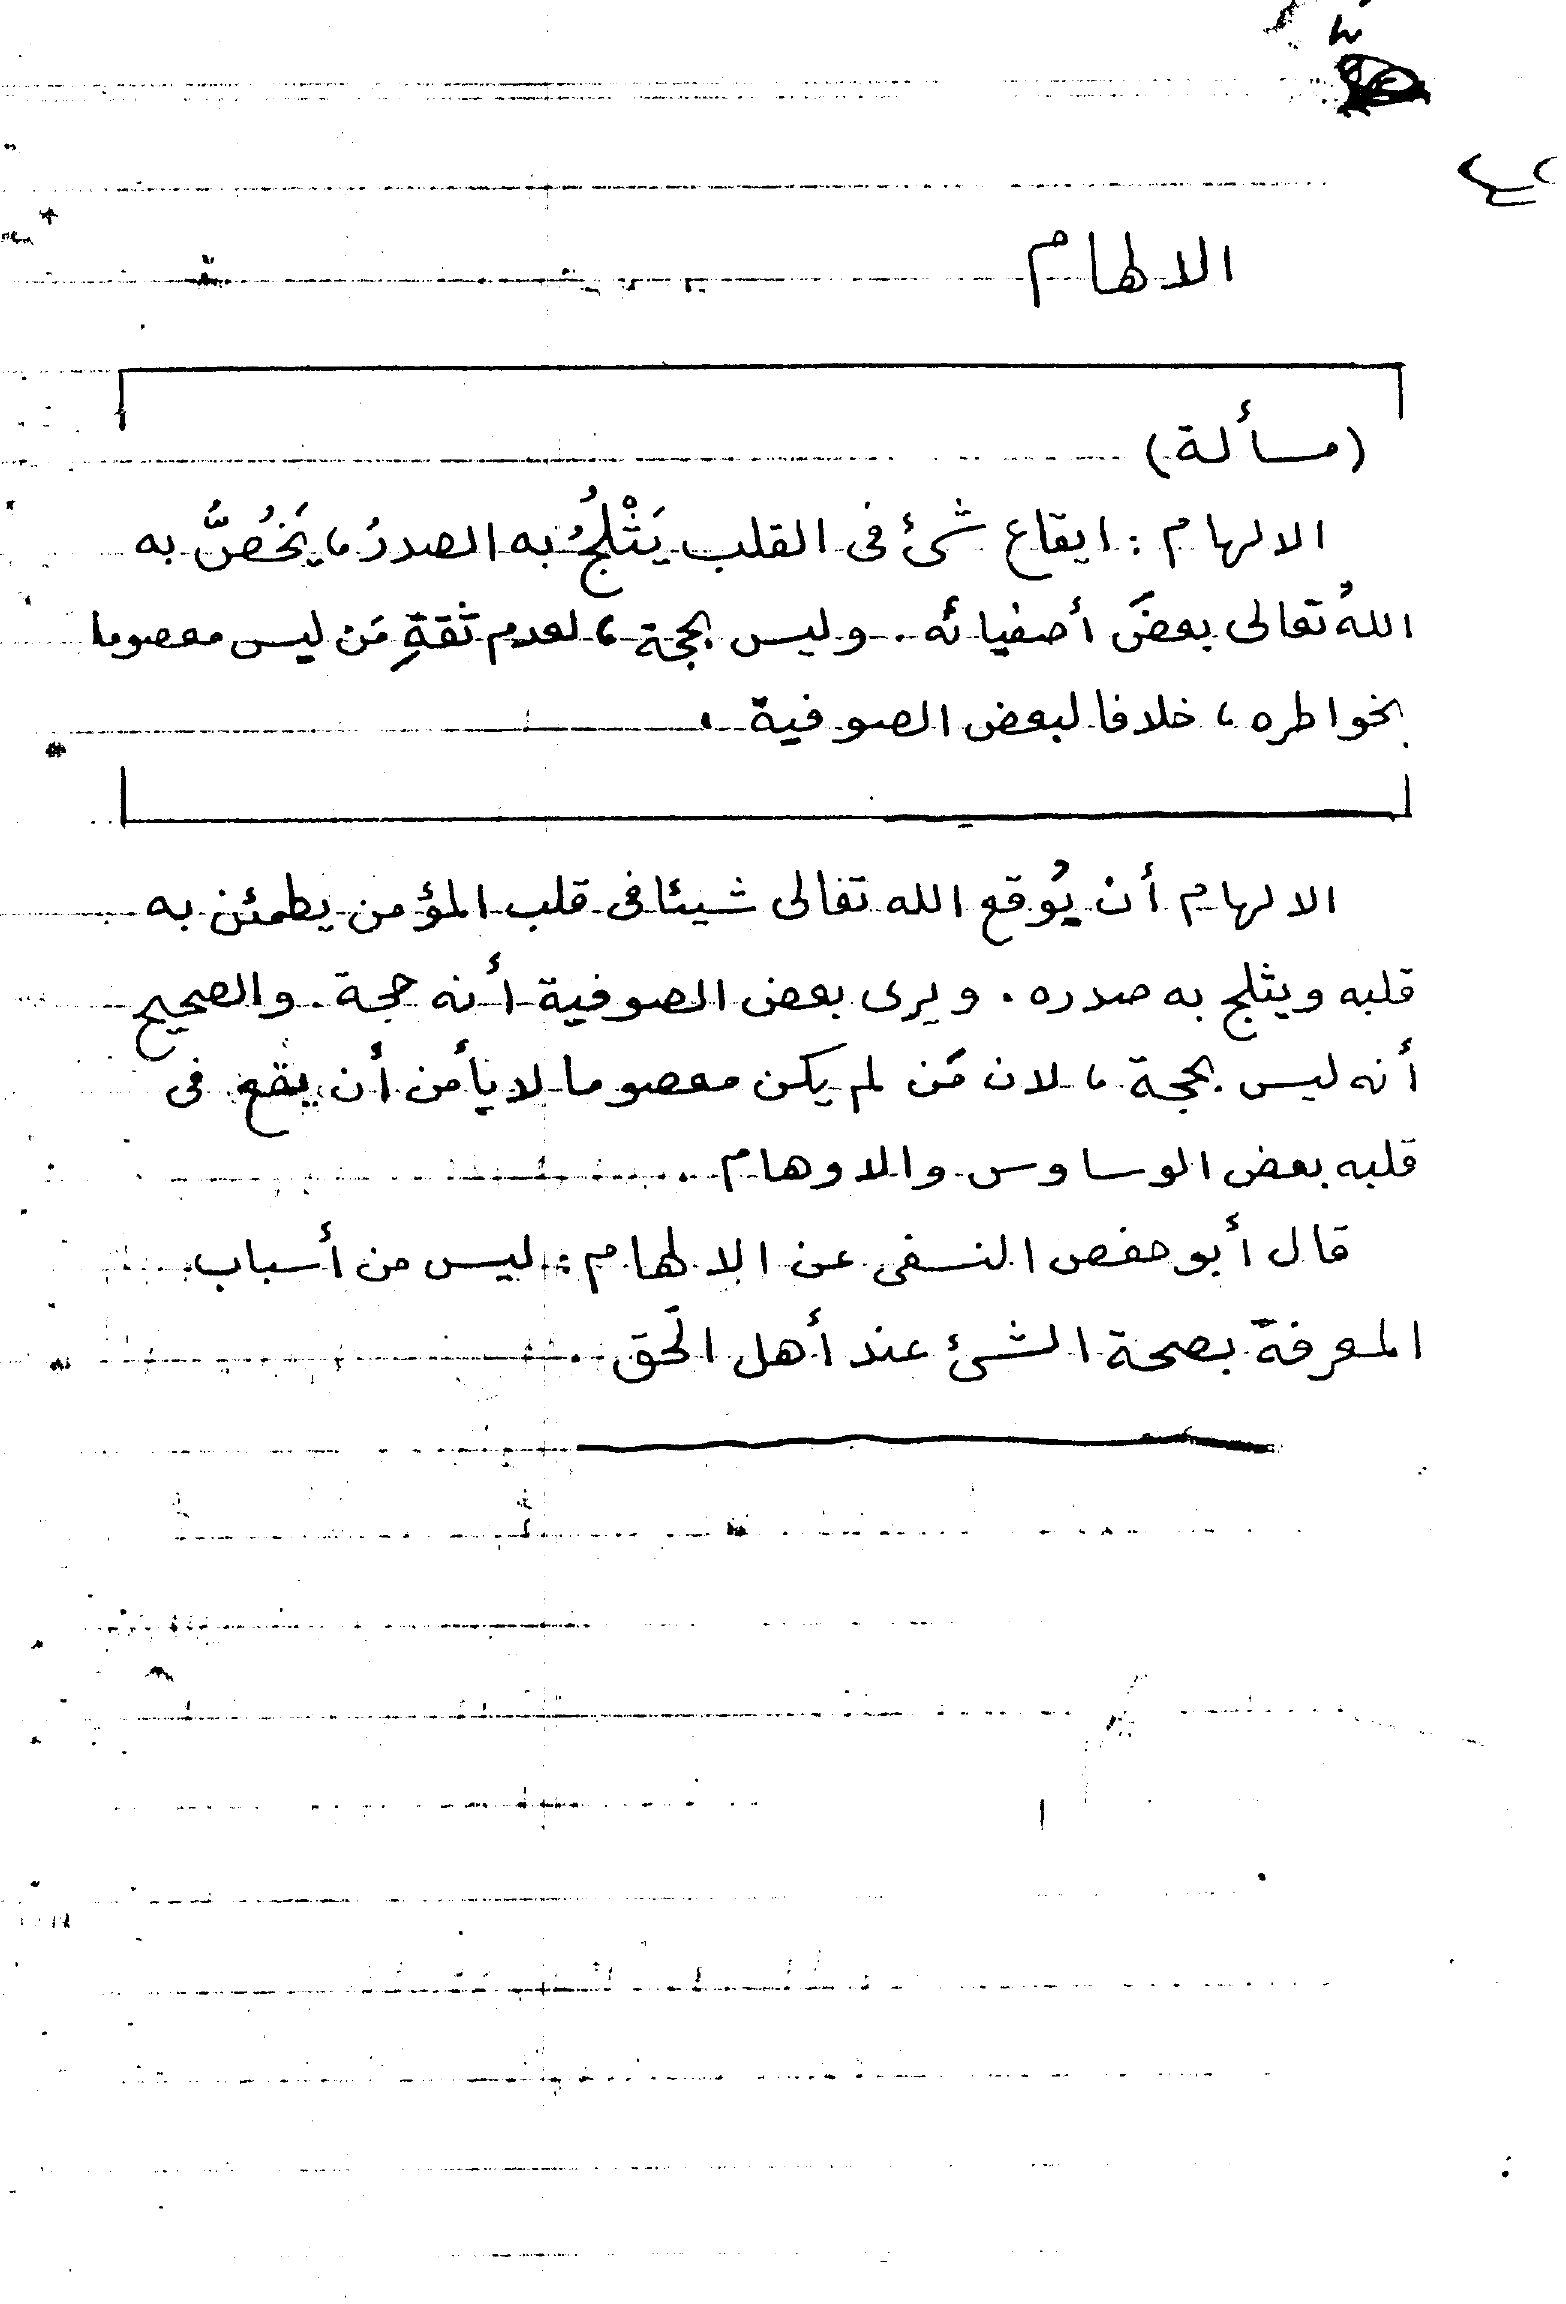 الالهام
(مسألة)
الالهام : ايقاع شئ فى القلب يَثْلُجُ به الصدرُ ، يَخُصُّ به
اللهُ تعالى بعضَ أصفيائه . وليس بحجة ، لعدم ثقةِ مَن ليس معصوما
بخواطره ، خلافا لبعض الصوفية .
الالهام أن يُوقع الله تعالى شيئا فى قلب المؤمن يطمئن به
قلبه ويثلج به صدره . ويرى بعض الصوفية أنه حجة . والصحيح
أنه ليس بحجة ، لان مَن لم يكن معصوما لا يأمن أن يقع فى
قلبه بعض الوساوس والاوهام .
قال أبو حفص النسفى عن الالهام : ليس من أسباب
المعرفة بصحة الشئ عند أهل الحَق .